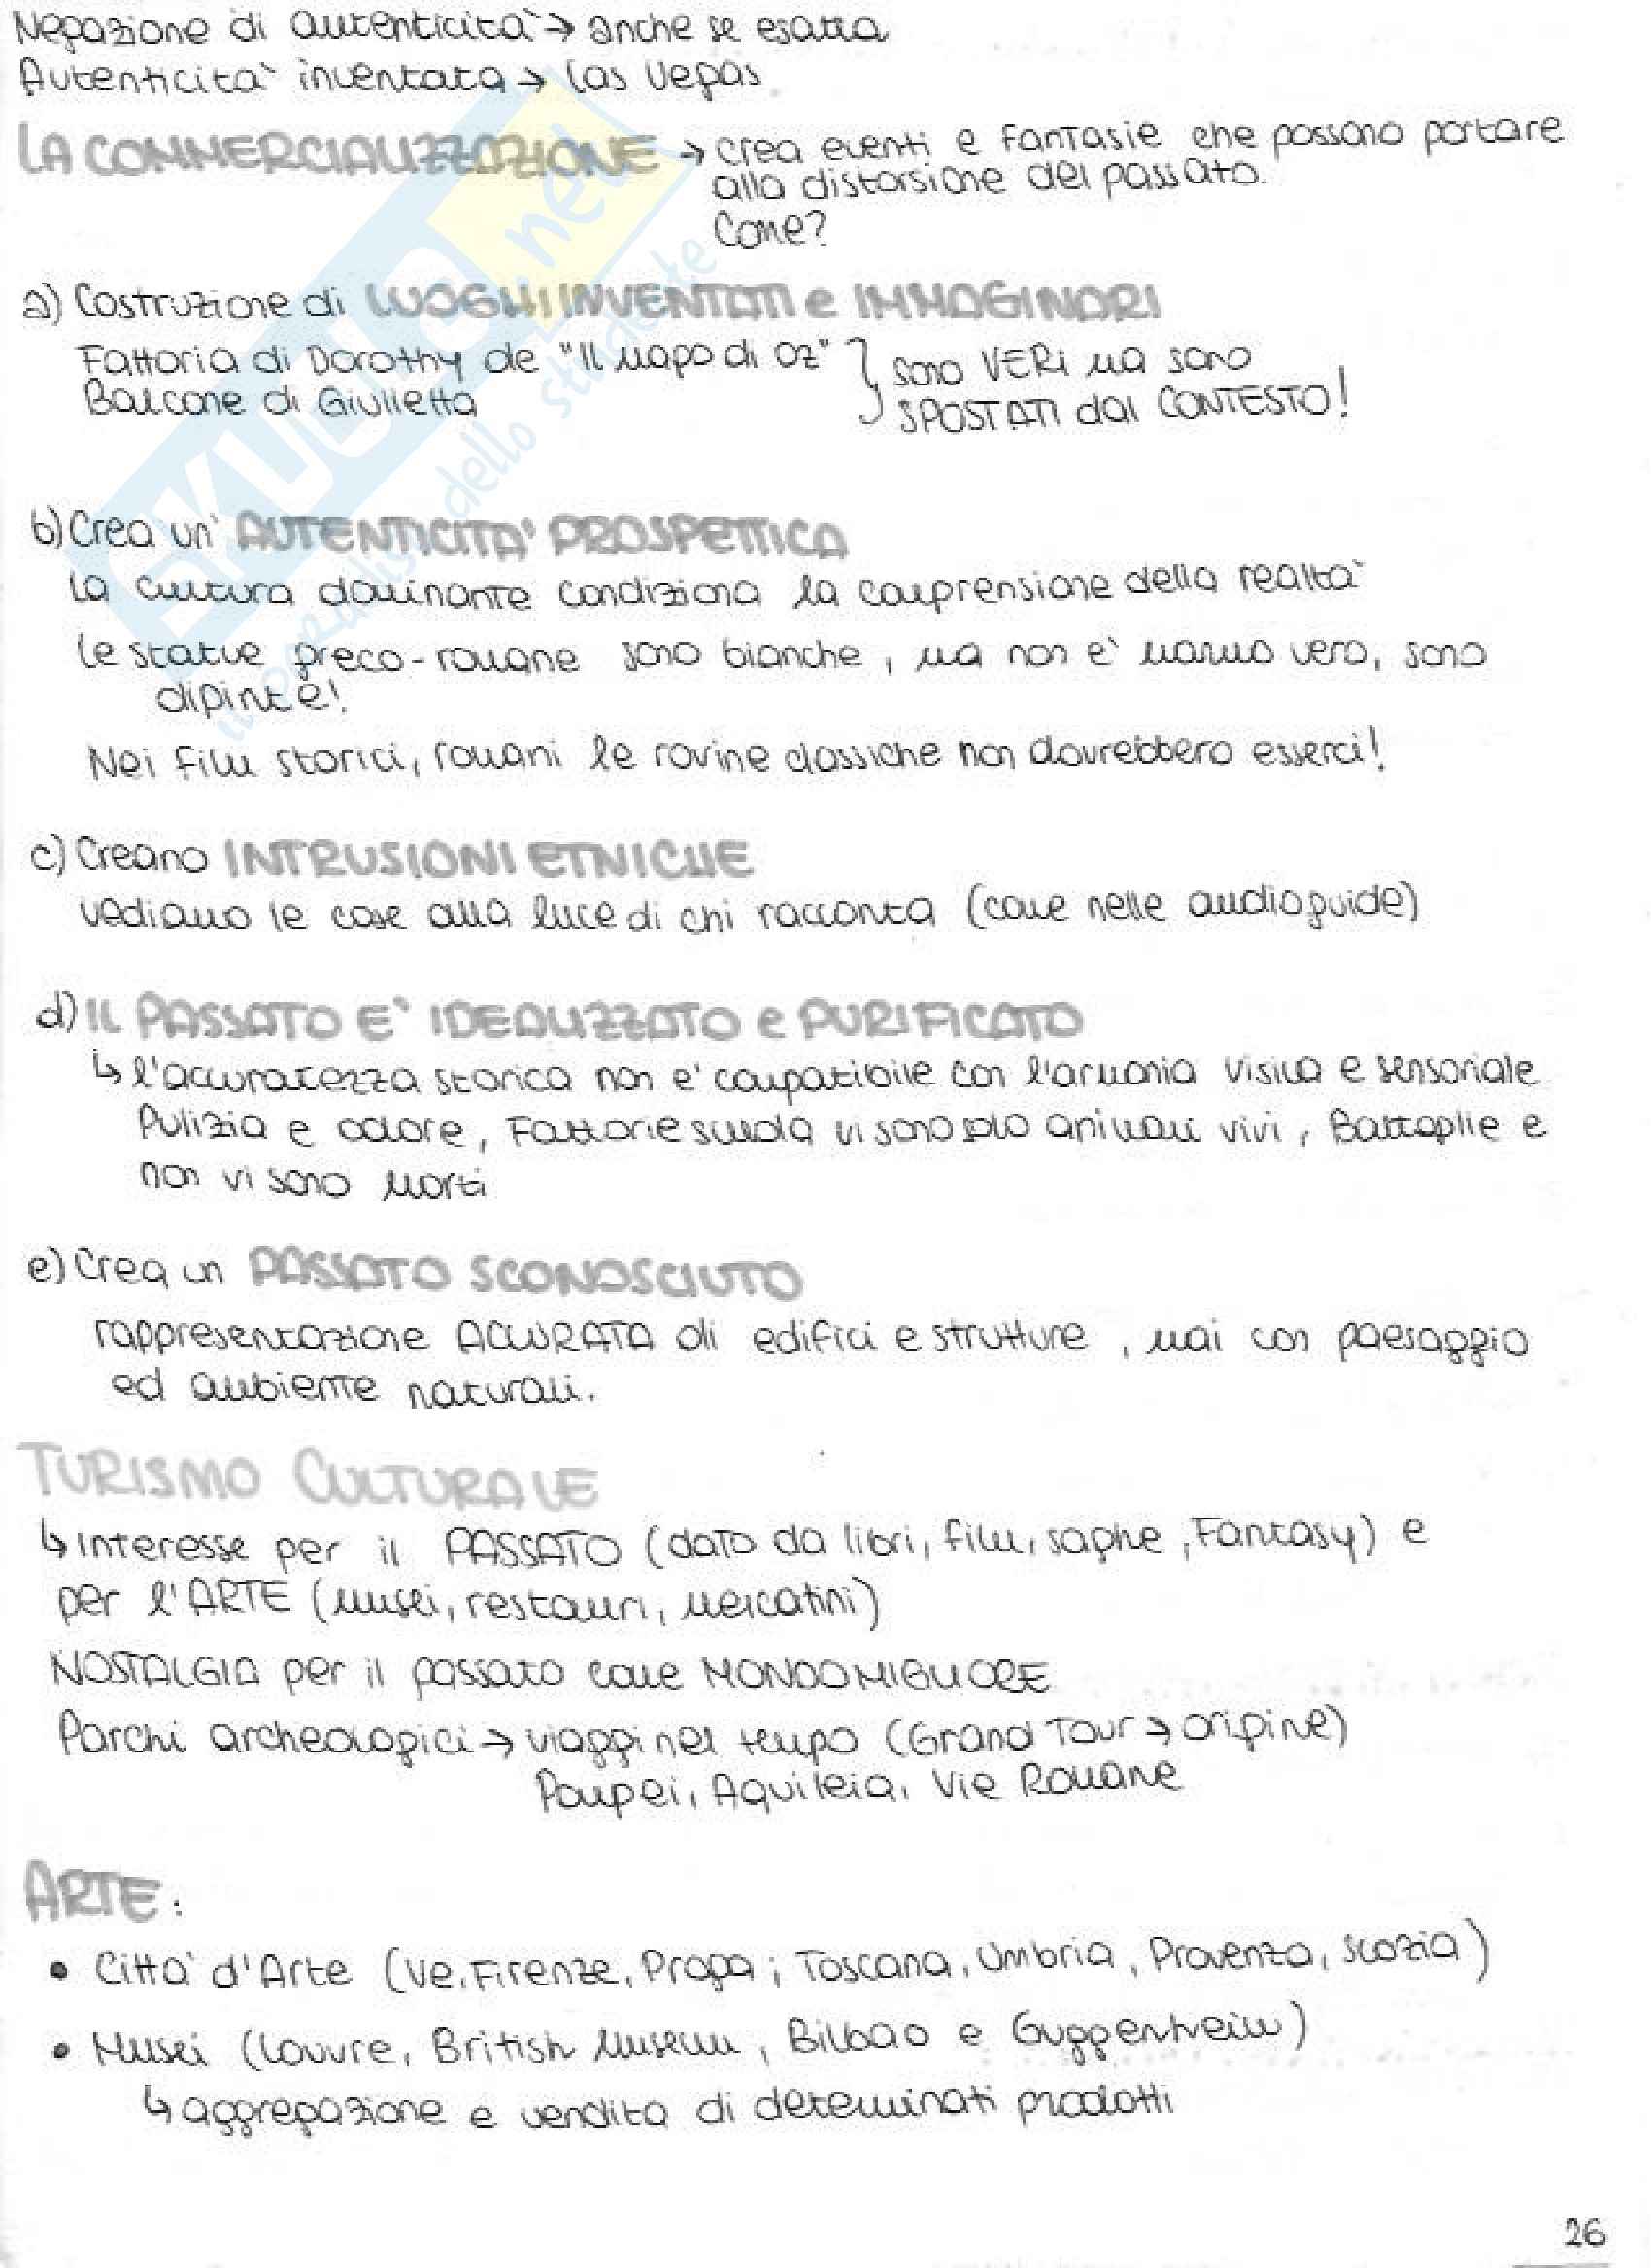 Negazione di autenticità → anche se esatta
Autenticità inventata → Las Vegas
LA COMMERCIALIZZAZIONE → crea eventi e fantasie che possono portare
alla distorsione del passato.
Come?
a) Costruzione di LUOGHI INVENTATI e IMMAGINARI
Fattoria di Dorothy de "Il mago di Oz"
Balcone di Giulietta
} sono VERI ma sono
SPOSTATI dal CONTESTO!
b) Crea un' AUTENTICITA' PROSPETTICA
La cultura dominante condiziona la comprensione della realtà
Le statue greco-romane sono bianche, ma non è marmo vero, sono
dipinte!
Nei film storici, romani le rovine classiche non dovrebbero esserci!
c) Creano INTRUSIONI ETNICHE
vediamo le cose alla luce di chi racconta (come nelle audioguide)
d) IL PASSATO E' IDEALIZZATO e PURIFICATO
↳ l'accuratezza storica non e' compatibile con l'armonia visiva e sensoriale
Pulizia e odore, Fattorie scuola vi sono solo animali vivi, Battaglie e
non vi sono morti
e) Crea un PASSATO SCONOSCIUTO
rappresentazione ACCURATA di edifici e strutture, mai con paesaggio
ed ambiente naturali.
TURISMO CULTURALE
↳ Interesse per il PASSATO (dato da libri, film, saghe, Fantasy) e
per l'ARTE (musei, restauri, mercatini)
NOSTALGIA per il passato come MONDO MIGLIORE
Parchi archeologici → viaggi nel tempo (Grand Tour → origine)
Pompei, Aquileia, Vie Romane
ARTE:
• Città d'Arte (Ve, Firenze, Praga; Toscana, Umbria, Provenza, Scozia)
• Musei (Louvre, British Museum, Bilbao e Guggenheim)
↳ aggregazione e vendita di determinati prodotti
26
SKUOLA.net
il portale dello studente